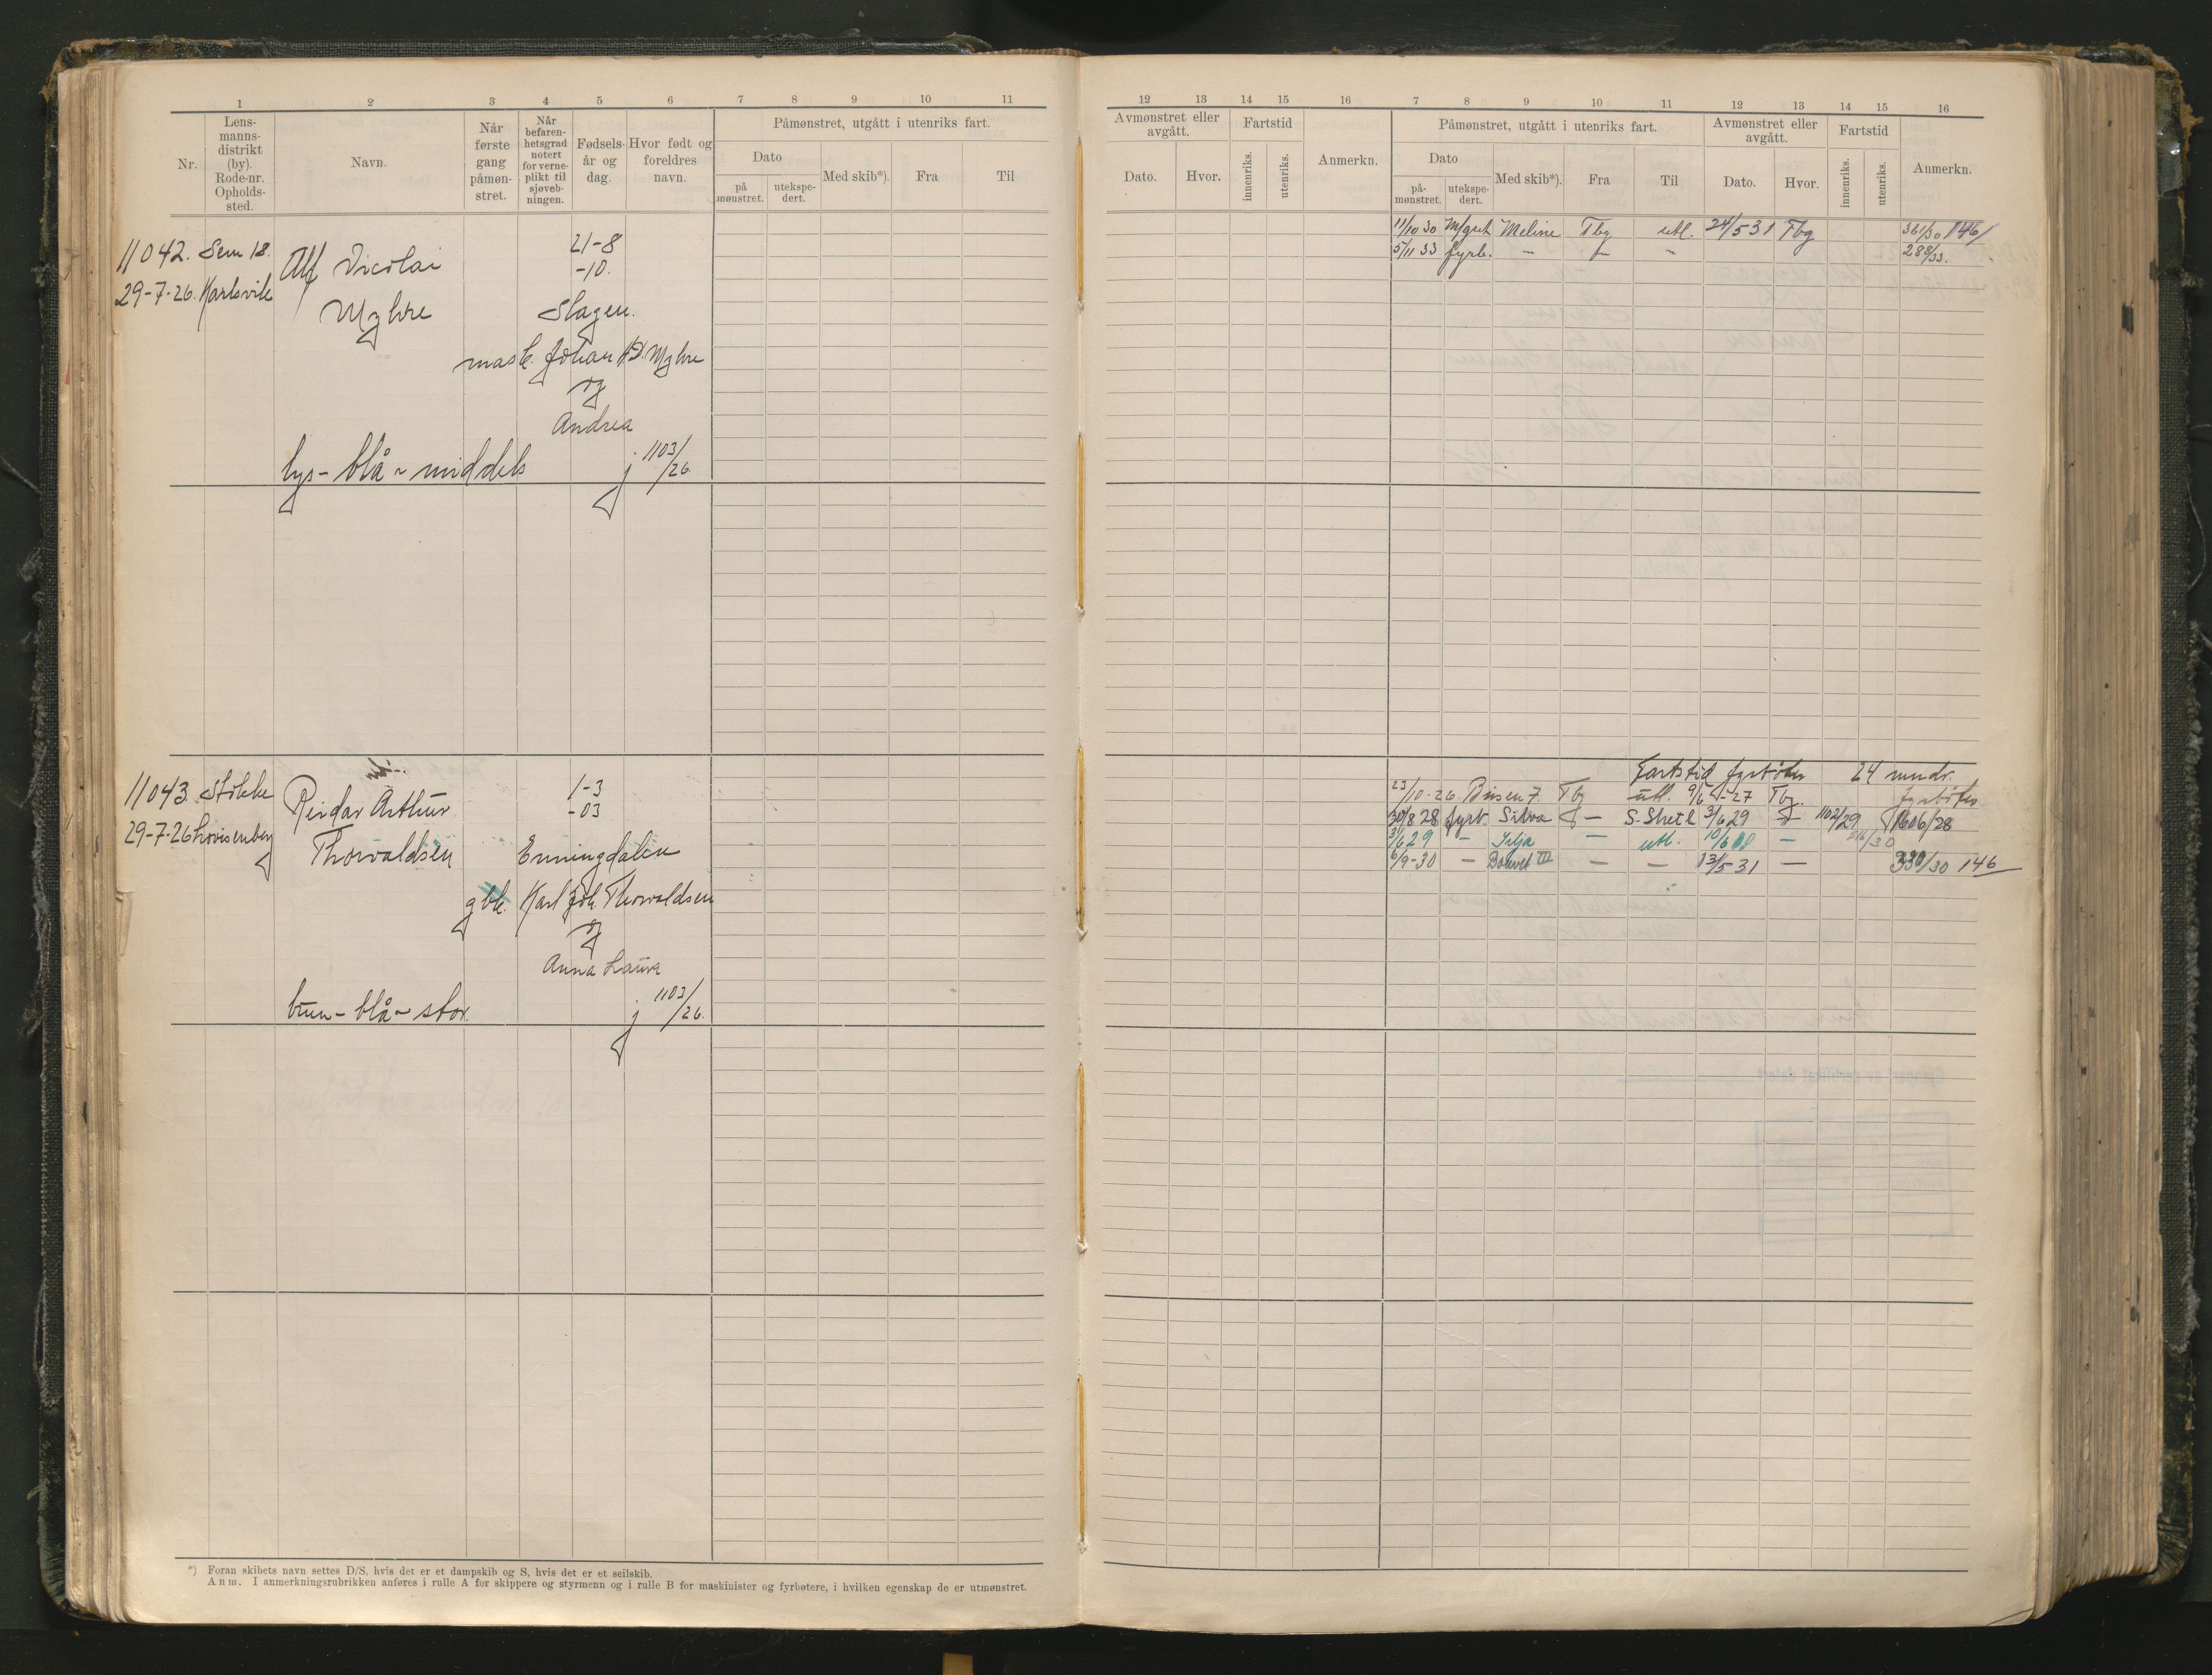 1 2 3 4 5 6 7 8 9 10 11
Nr.
Lens-
manns-
distrikt
(by).
Rode-nr.
Opholds-
sted.
Navn.
Når
første
gang
påmøn-
stret.
Når
befaren-
hetsgrad
notert
for verne-
plikt til
sjøveb-
ningen.
Fødsels-
år og
dag.
Hvor født og
foreldres
navn.
Påmønstret, utgått i utenriks fart.
Dato
på
mønstret.
utekspe-
dert.
Med skib*).
Fra
Til
11042. Sem 18.
29-7-26. Karlsvik
Alf Nicolai
Myhre
21-8
-10.
Slagen.
mask. Johan H. Myhre
og
Andrea
lys - blå - middels
j 1103/26
11043. Stokke
29-7-26 Lovisenberg
Reidar Arthur
Thorvaldsen
1-3
-03
Enningdalen
gbk. Karl Joh. Thorvaldsen
og
Anna Laura
brun - blå - stor.
j 1103/26.
*) Foran skibets navn settes D/S, hvis det er et dampskib og S, hvis det er et seilskib.
Anm. I anmerkningsrubrikken anføres i rulle A for skippere og styrmenn og i rulle B for maskinister og fyrbøtere, i hvilken egenskap de er utmønstret.
12 13 14 15 16 7 8 9 10 11 12 13 14 15 16
Avmønstret eller
avgått.
Dato.
Hvor.
Fartstid
innenriks.
utenriks.
Anmerkn.
Påmønstret, utgått i utenriks fart.
Dato
på-
mønstret.
utekspe-
dert.
Med skib*).
Fra
Til
Avmønstret eller
avgått.
Dato.
Hvor.
Fartstid
innenriks.
utenriks.
Anmerkn.
11/10 30 M/gut Meline Tbg utl. 24/5 31 Tbg 361/30 146/
5/11 33 fyrb. - - - 288/33.
Fartstid fyrbøter 24 mndr.
23/10-26. Busen 7. Tbg utl. 9/6-27 Tbg. fyrbøter
30/8 28 fyrb. Silva - S. Shetl 3/6 29 1102/29 1606/28
3/6 29 - Silja - utl. 10/6 -
6/9-30 - Bouvet III - - 13/5-31 - 330/30 146